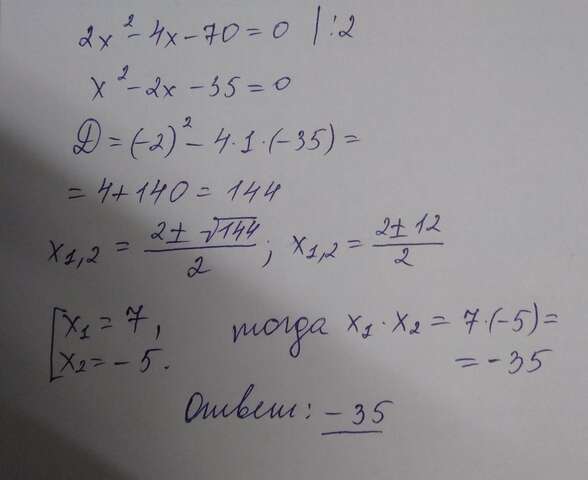 2x² - 4x - 70 = 0 | :2
x² - 2x - 35 = 0
D = (-2)² - 4·1·(-35) =
= 4 + 140 = 144
x₁,₂ = (2 ± √144)/2 ; x₁,₂ = (2 ± 12)/2
[x₁ = 7, тогда x₁ · x₂ = 7·(-5) =
x₂ = -5. = -35
Ответ: -35